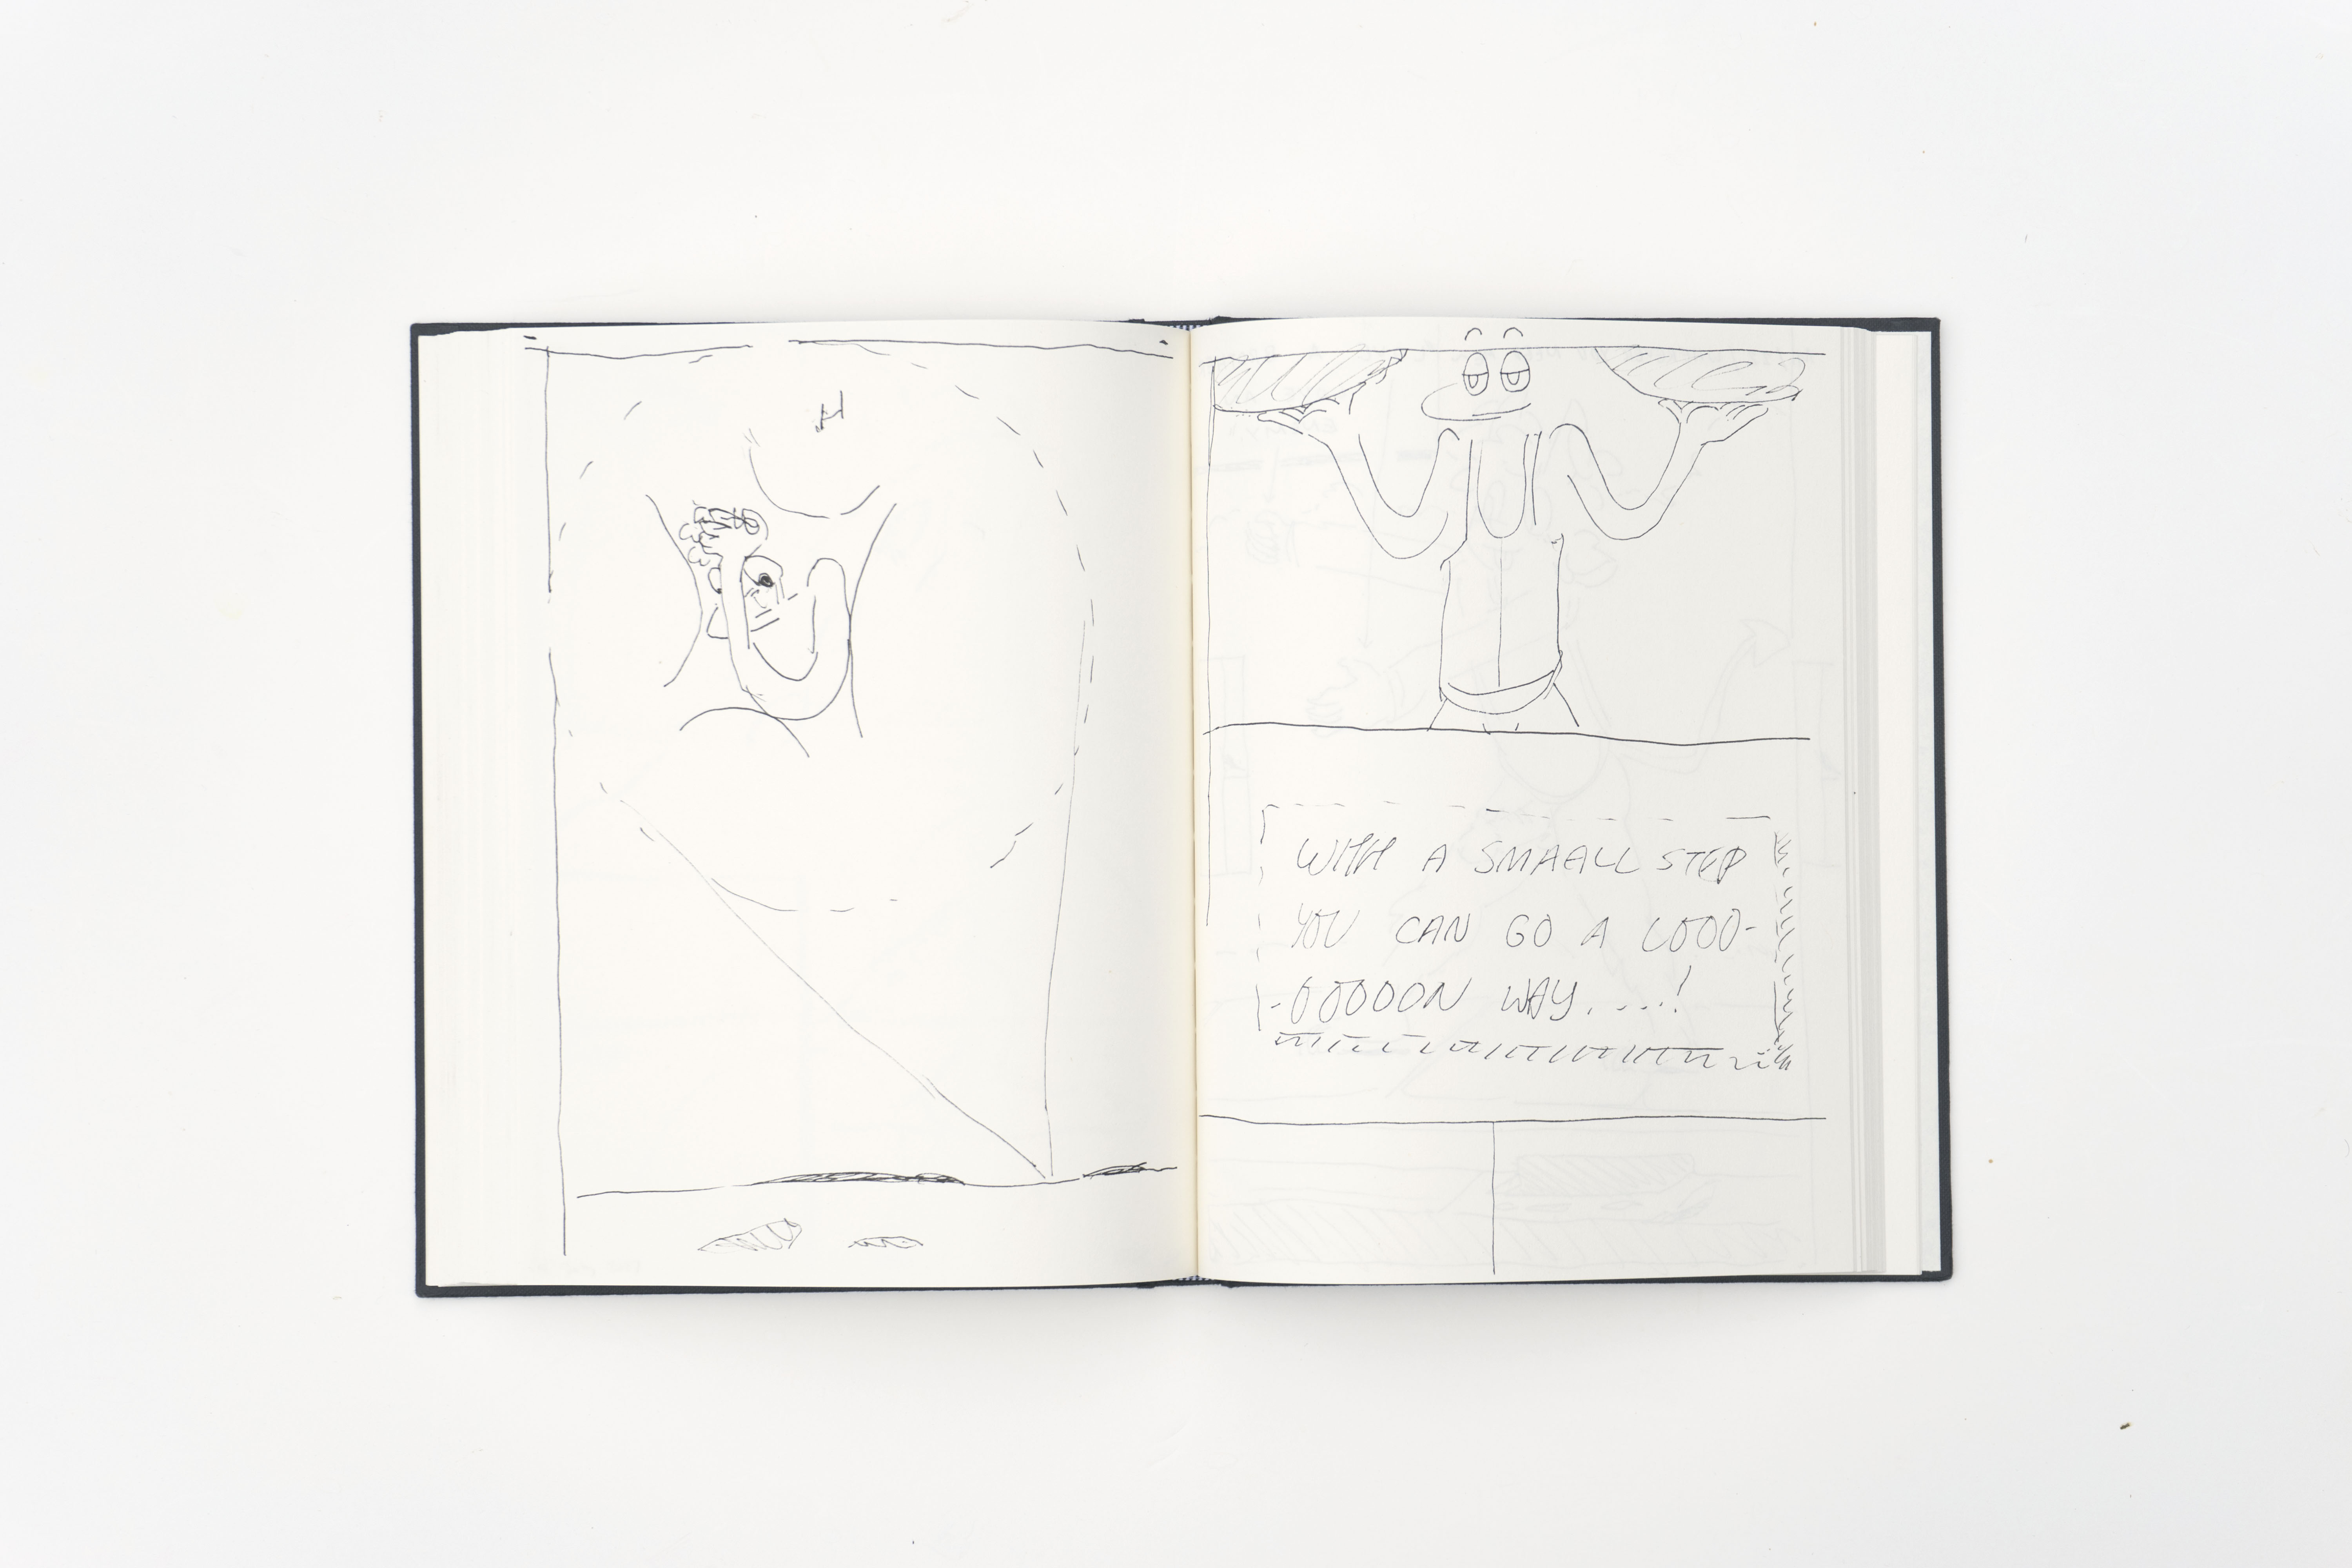 WITH A SMAALL STEP
YOU CAN GO A LOOO-
-OOOOON WAY....!